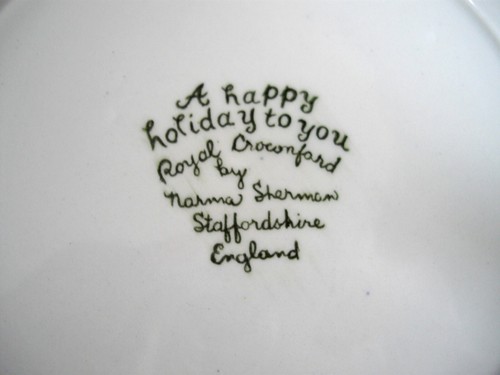 A happy
holiday to you
Royal Croconfard
by
Norma Sherman
Staffordshire
England